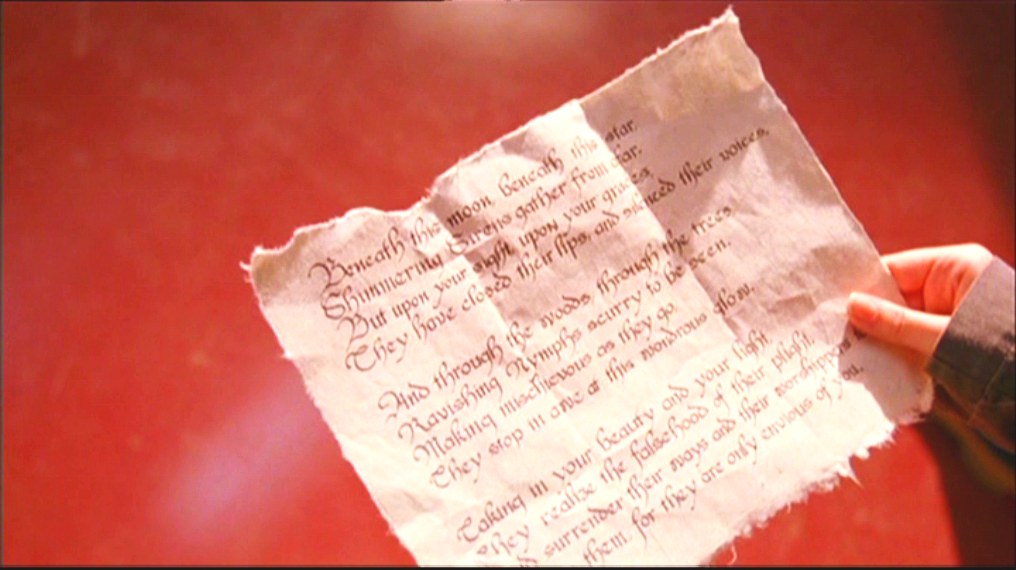 Beneath this moon, beneath this star,
Shimmering Sirens gather from afar.
But upon your sight, upon your graces,
They have closed their lips, and silenced their voices.
And through the woods through the trees
Ravishing Nymphs scurry to be seen.
Making mischievous as they go
They stop in awe at this wondrous glow.
Taking in your beauty and your light
They realize the falsehood of their plight.
surrender their ways and their worshippers
them, for they are only envious of you.